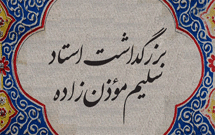 بزرگداشت استاد
سلیم مؤذن زاده